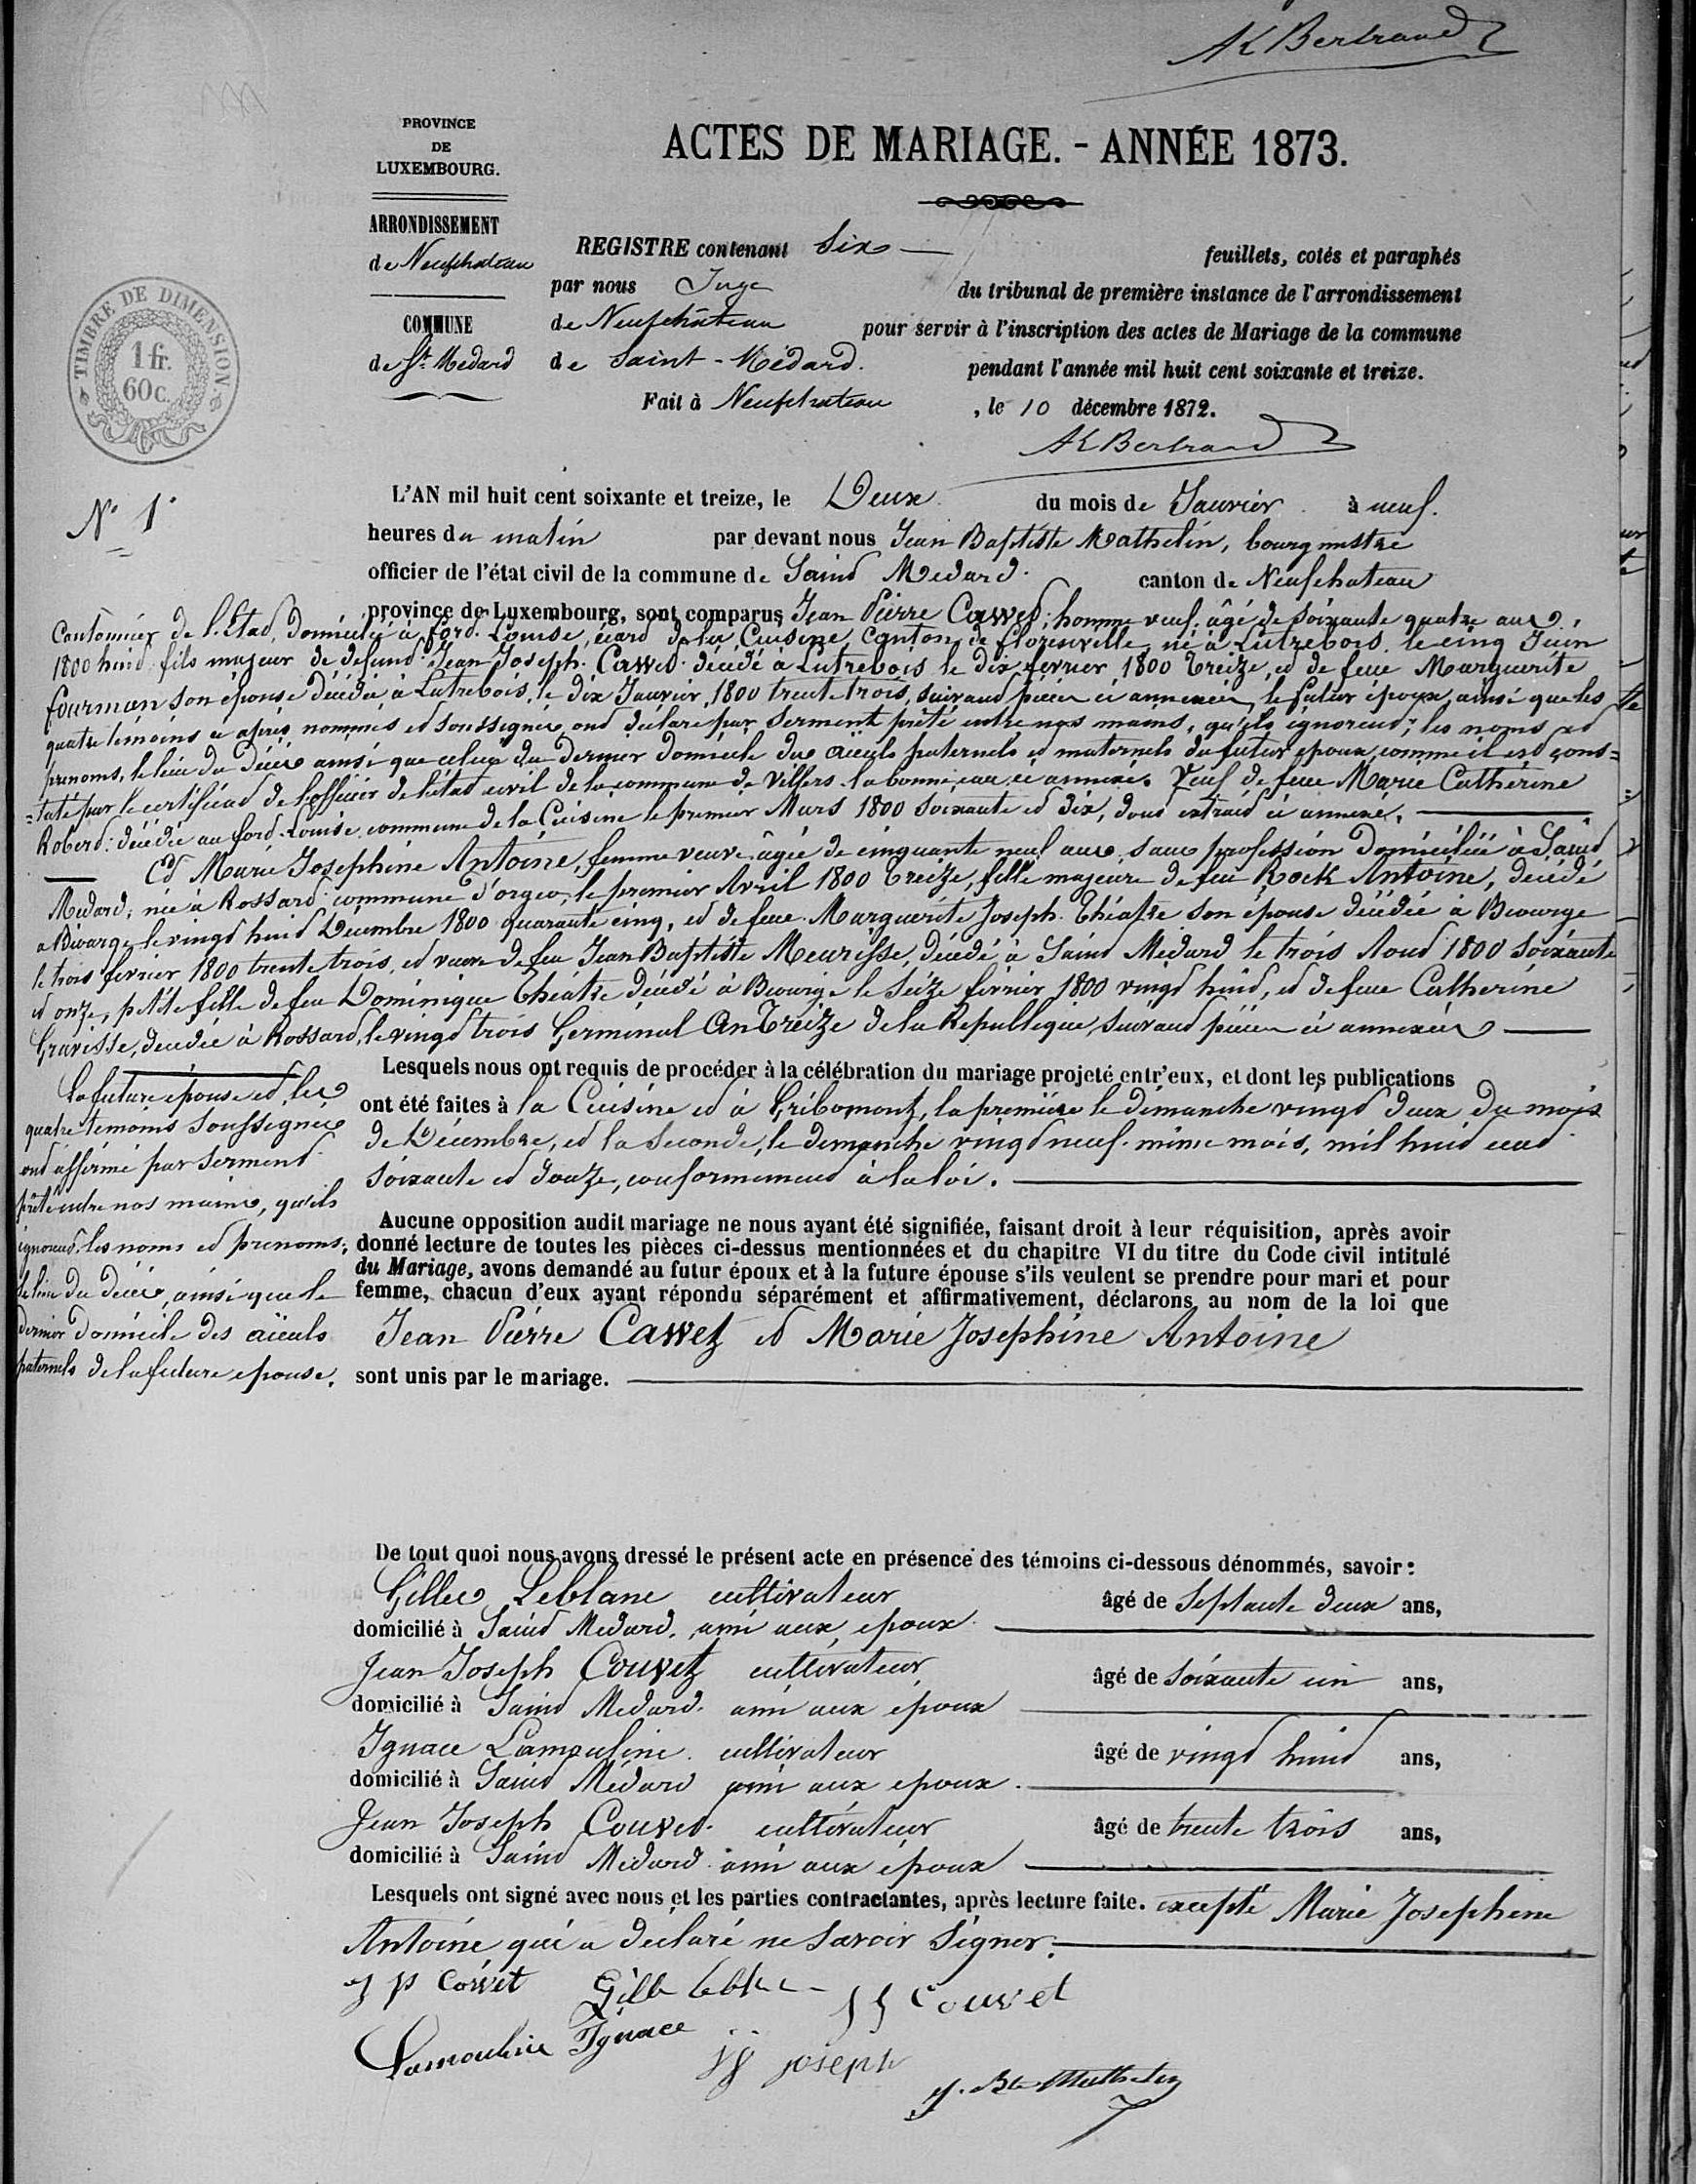 AK Bertrand
PROVINCE
DE
LUXEMBOURG.
ACTES DE MARIAGE. - ANNÉE 1873.
ARRONDISSEMENT
de Neufchateau
COMMUNE
de St Medard
TIMBRE DE DIMENSION.
1 fr.
60 c.
REGISTRE contenant Six feuillets, cotés et paraphés
par nous Juge du tribunal de première instance de l'arrondissement
de Neufchâteau pour servir à l'inscription des actes de Mariage de la commune
de Saint-Médard. pendant l'année mil huit cent soixante et treize.
Fait à Neufchateau, le 10 décembre 1872.
AK Bertrand
N° 1
L'AN mil huit cent soixante et treize, le Deux du mois de Janvier à neuf.
heures du matin par devant nous Jean Baptiste Mathelin, bourgmestre
officier de l'état civil de la commune de Saind Medard. canton de Neufchateau
province de Luxembourg, sont comparus Jean Pierre Cawet, homme veuf. âgé de soixante quatre ans,
Cantonnier de l'Etad, domicilié à ford. Louise, écard de la Cuisine, Canton de Florenville, né à Lutrebois, le cinq Juin
1800 huid, fils majeur de defund Jean Joseph Cawed. décédé à Lutrebois le dix fevrier 1800 treize, ed de feue Marguerite
fourman son épouse décédée à Lutrebois, le dix Janvier, 1800 trente trois, suivand pièces ci annexées, le futur époux ainsi que les
quatre témoins ci après nommés ed soussignés ond déclaré par serment prêté entre nos mains, qu'ils ignorend; les noms ed
prenoms, le lieu du décès ainsi que celui du dernier domicile des aïeuls paternels ed maternels du futur epoux, comme il est cons=
=taté par le certificad de l'officier de l'étad civil de la commune de Villers-la bonne eau, ci annexé. Veuf de feue Marie Catherine
Roberd: décédée au ford-Louise, commune de la Cuisine le premier Mars 1800 soixante ed dix, dond extraid ci annexé.
Ed Marie Josephine Antoine, femme veuve âgée de cinquante neuf ans, sans profession Domiciliée à Saind
Medard, née à Rossard commune d'orgeo, le premier Avril 1800 treize, fille majeure de feu Rock Antoine, décédé
a Biourge le vingd huid Décembre 1800 quarante cinq, ed de feue Marguerite Joseph. Théatre son épouse décédée à Biourge
le trois fevrier 1800 trente trois, ed veuve de feu Jean Baptiste Meurisse, décédé à Saind Médard le trois Aoud 1800 soixante
ed onze, petite fille de feu Dominique Théatre décédé à Biourge le Seize février 1800 vingd huid, ed de feue Catherine
Gravisse, decédée à Rossard, le vingd trois Germinal An Treize de la Republique, suivand pièces ci annexées
La future epouse ed les
quatre temoins soussignés
ond affirmé par serment
prêté entre nos mains, qu'ils
ignorend, les noms ed prenoms,
le lieu du décès, ainsi que le
dernier domicile des aïeuls
paternels de la future epouse.
Lesquels nous ont requis de procéder à la célébration du mariage projeté entr'eux, et dont les publications
ont été faites à la Cuisine ed à Gribomont, la première le dimanche vingd deux du mois
de Décembre, ed la seconde, le dimanche vingd neuf même mois, mil huid cend
soixante ed douze, conformémend à la loi.
Aucune opposition audit mariage ne nous ayant été signifiée, faisant droit à leur réquisition, après avoir
donné lecture de toutes les pièces ci-dessus mentionnées et du chapitre VI du titre du Code civil intitulé
du Mariage, avons demandé au futur époux et à la future épouse s'ils veulent se prendre pour mari et pour
femme, chacun d'eux ayant répondu séparément et affirmativement, déclarons au nom de la loi que
Jean Pierre Cawet ed Marie Josephine Antoine
sont unis par le mariage.
De tout quoi nous avons dressé le présent acte en présence des témoins ci-dessous dénommés, savoir :
Gilles Leblanc cultivateur âgé de Septante deux ans,
domicilié à Saind Medard, ami aux epoux.
Jean Joseph Couvet cultivateur âgé de soixante un ans,
domicilié à Saind Medard. ami aux époux
Ignace Lamouline. cultivateur âgé de vingd huid ans,
domicilié à Saind Médard ami aux epoux.
Jean Joseph Couved. cultivateur âgé de trente trois ans,
domicilié à Saind Médard. ami aux époux
Lesquels ont signé avec nous et les parties contractantes, après lecture faite. excepté Marie Josephine
Antoine qui a declaré ne savoir signer.
J P Corvet Gille Leblanc JJ Couvet
Lamouline Ignace
joseph
J. Bte Mathelin